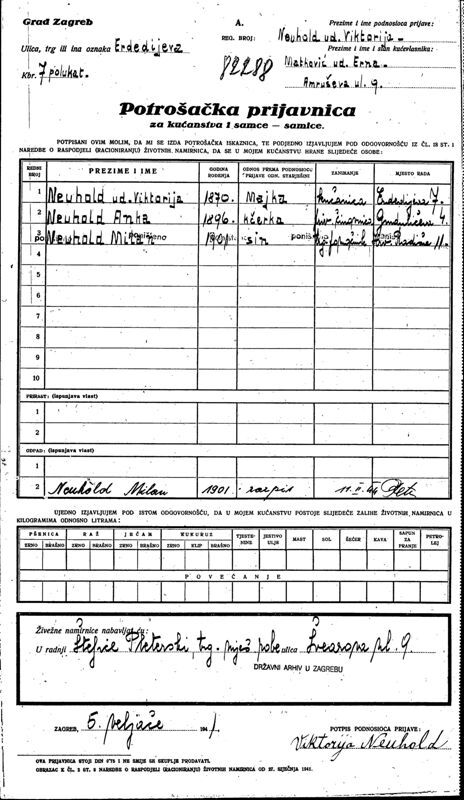 Grad Zagreb
A.
Prezime i ime podnosioca prijave:
Ulica, trg ili ina oznaka Erdedijeva
REG. BROJ:
Neuhold ud. Viktorija
Prezime i ime i stan kućevlasnika:
Kbr. 7 polukat.
82288
Matković ud. Erna
Amruševa ul. 9
Potrošačka prijavnica
za kućanstva i samce — samice.
POTPISANI OVIM MOLIM, DA MI SE IZDA POTROŠAČKA ISKAZNICA, TE PODJEDNO IZJAVLJUJEM POD ODGOVORNOŠĆU IZ ČL. 18 ST. 1
NAREDBE O RASPODJELI (RACIONIRANJU) ŽIVOTNIH NAMIRNICA, DA SE U MOJEM KUĆANSTVU HRANE SLIJEDEĆE OSOBE:
REDNI BROJ PREZIME I IME GODINA ROĐENJA ODNOS PREMA PODNOSIOCU PRIJAVE ODN. STARJEŠINI ZANIMANJE MJESTO RADA
1 Neuhold ud. Viktorija 1870. Majka kućanica Erdedijeva 7.
2 Neuhold Anka 1896. kćerka 4.
3 Neuhold Milan poništeno 1901 sin 11.
4
5
6
7
8
9
10
PRIRAST: (ispunjava vlast)
1
2
OTPAD: (ispunjava vlast)
1
2 Neuhold Milan 1901. 11. II. 44
UJEDNO IZJAVLJUJEM POD ISTOM ODGOVORNOŠĆU, DA U MOJEM KUĆANSTVU POSTOJE SLIJEDEĆE ZALIHE ŽIVOTNIH NAMIRNICA U
KILOGRAMIMA ODNOSNO LITRAMA:
PŠENICA RAŽ JEČAM KUKURUZ TJESTENINE JESTIVO ULJE MAST SOL ŠEĆER KAVA SAPUN ZA PRANJE PETROLEJ
ZRNO BRAŠNO ZRNO BRAŠNO ZRNO BRAŠNO ZRNO KLIP BRAŠNO
POVEĆANJE
Živežne namirnice nabavljat ću:
U radnji Pleterski, trg. ulica pl. 9
DRŽAVNI ARHIV U ZAGREBU
ZAGREB, 5. veljače 194
POTPIS PODNOSIOCA PRIJAVE:
Viktorija Neuhold
OVA PRIJAVNICA STOJI DIN 0'75 I NE SMIJE SE SKUPLJE PRODAVATI.
OBRAZAC K ČL. 2 ST. 2 NAREDBE O RASPODJELI (RACIONIRANJU) ŽIVOTNIH NAMIRNICA OD 27. SIJEČNJA 1941.